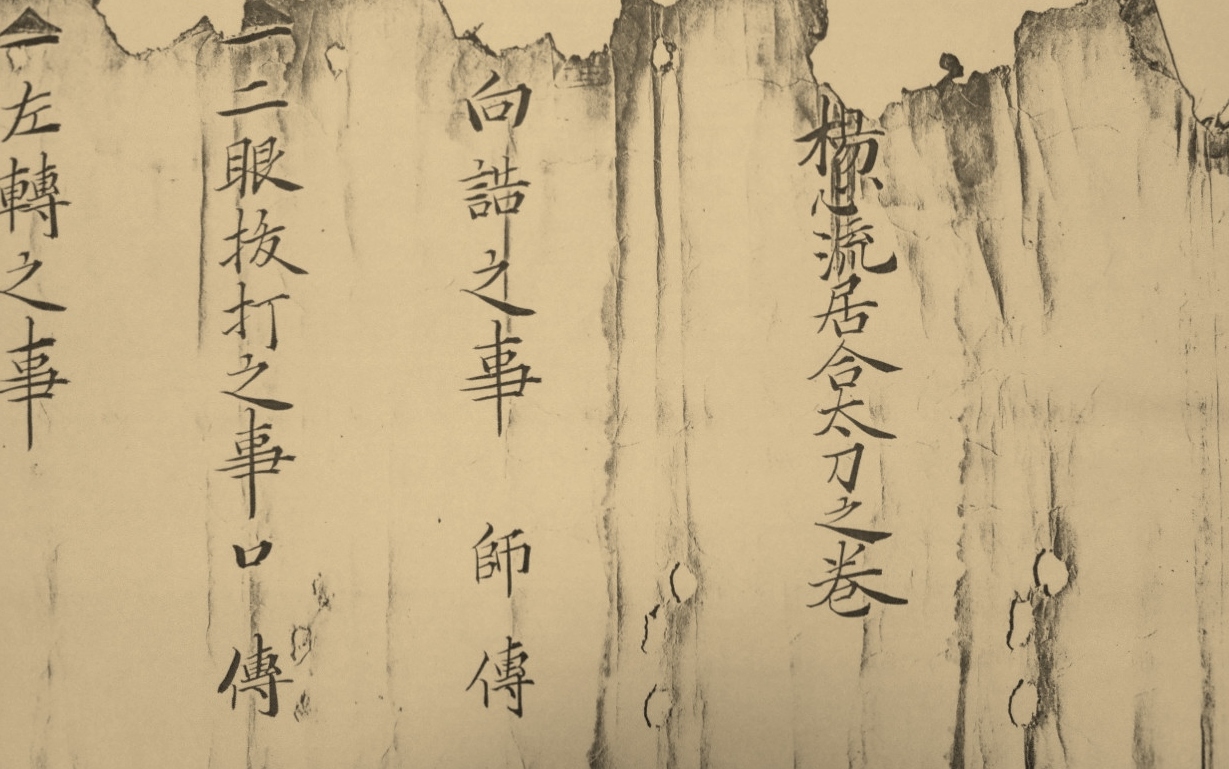 楊心流居合太刀之巻
向詰之事 師傳
一二眼抜打之事 口傳
一左轉之事